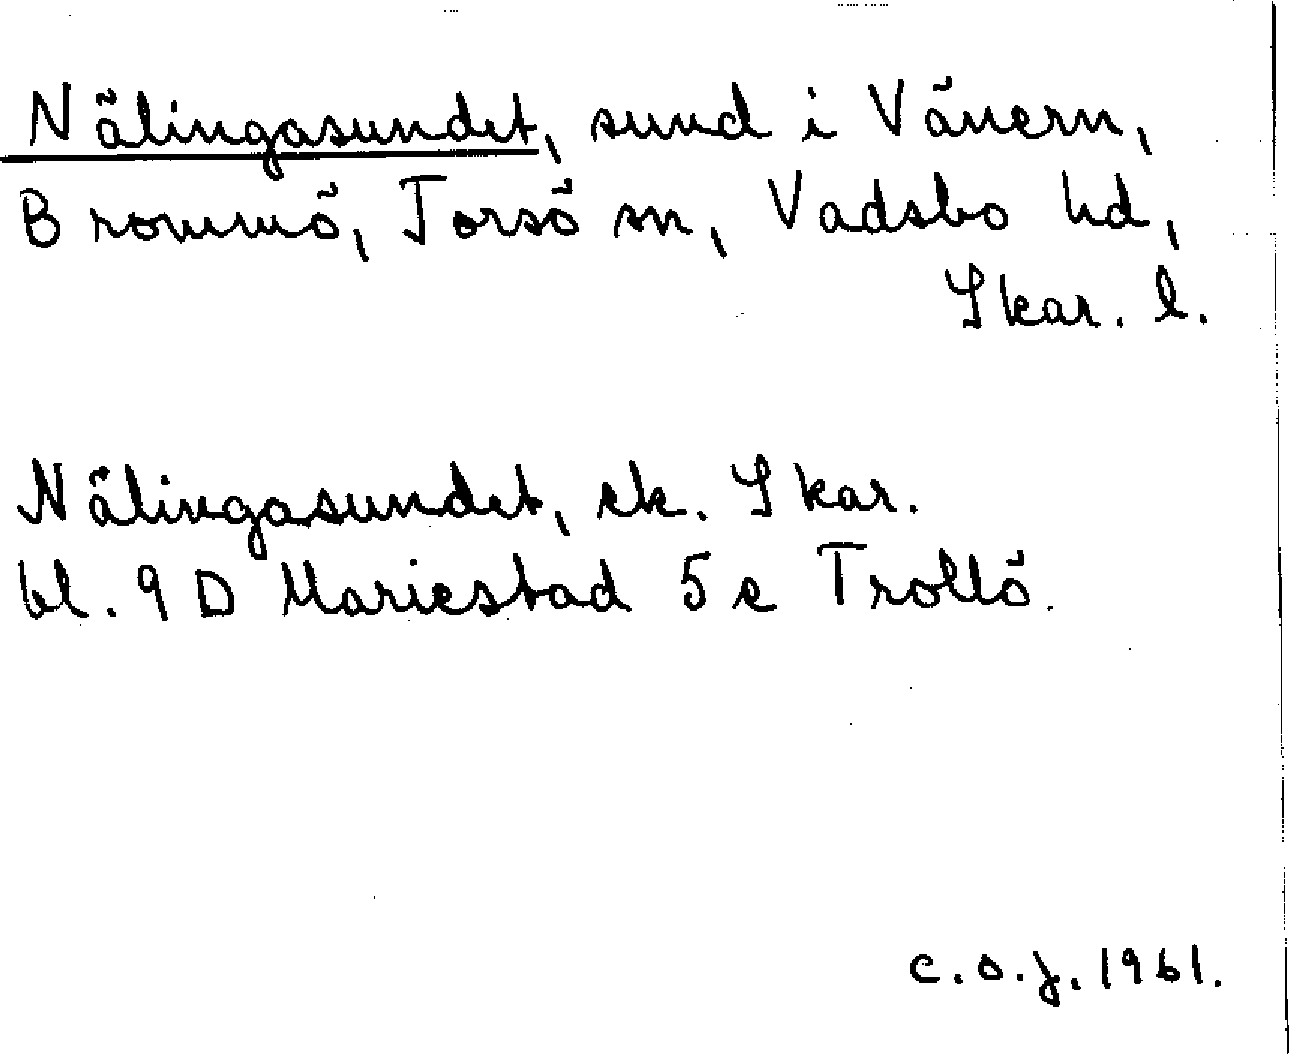 Nälingasundet, sund i Vänern,
Brommö, Torsö sn, Vadsbo hd,
Skar. l.
Nälingasundet, ek. Skar.
bl. 9 D Mariestad 5 e Trollö.
c.o.j. 1961.